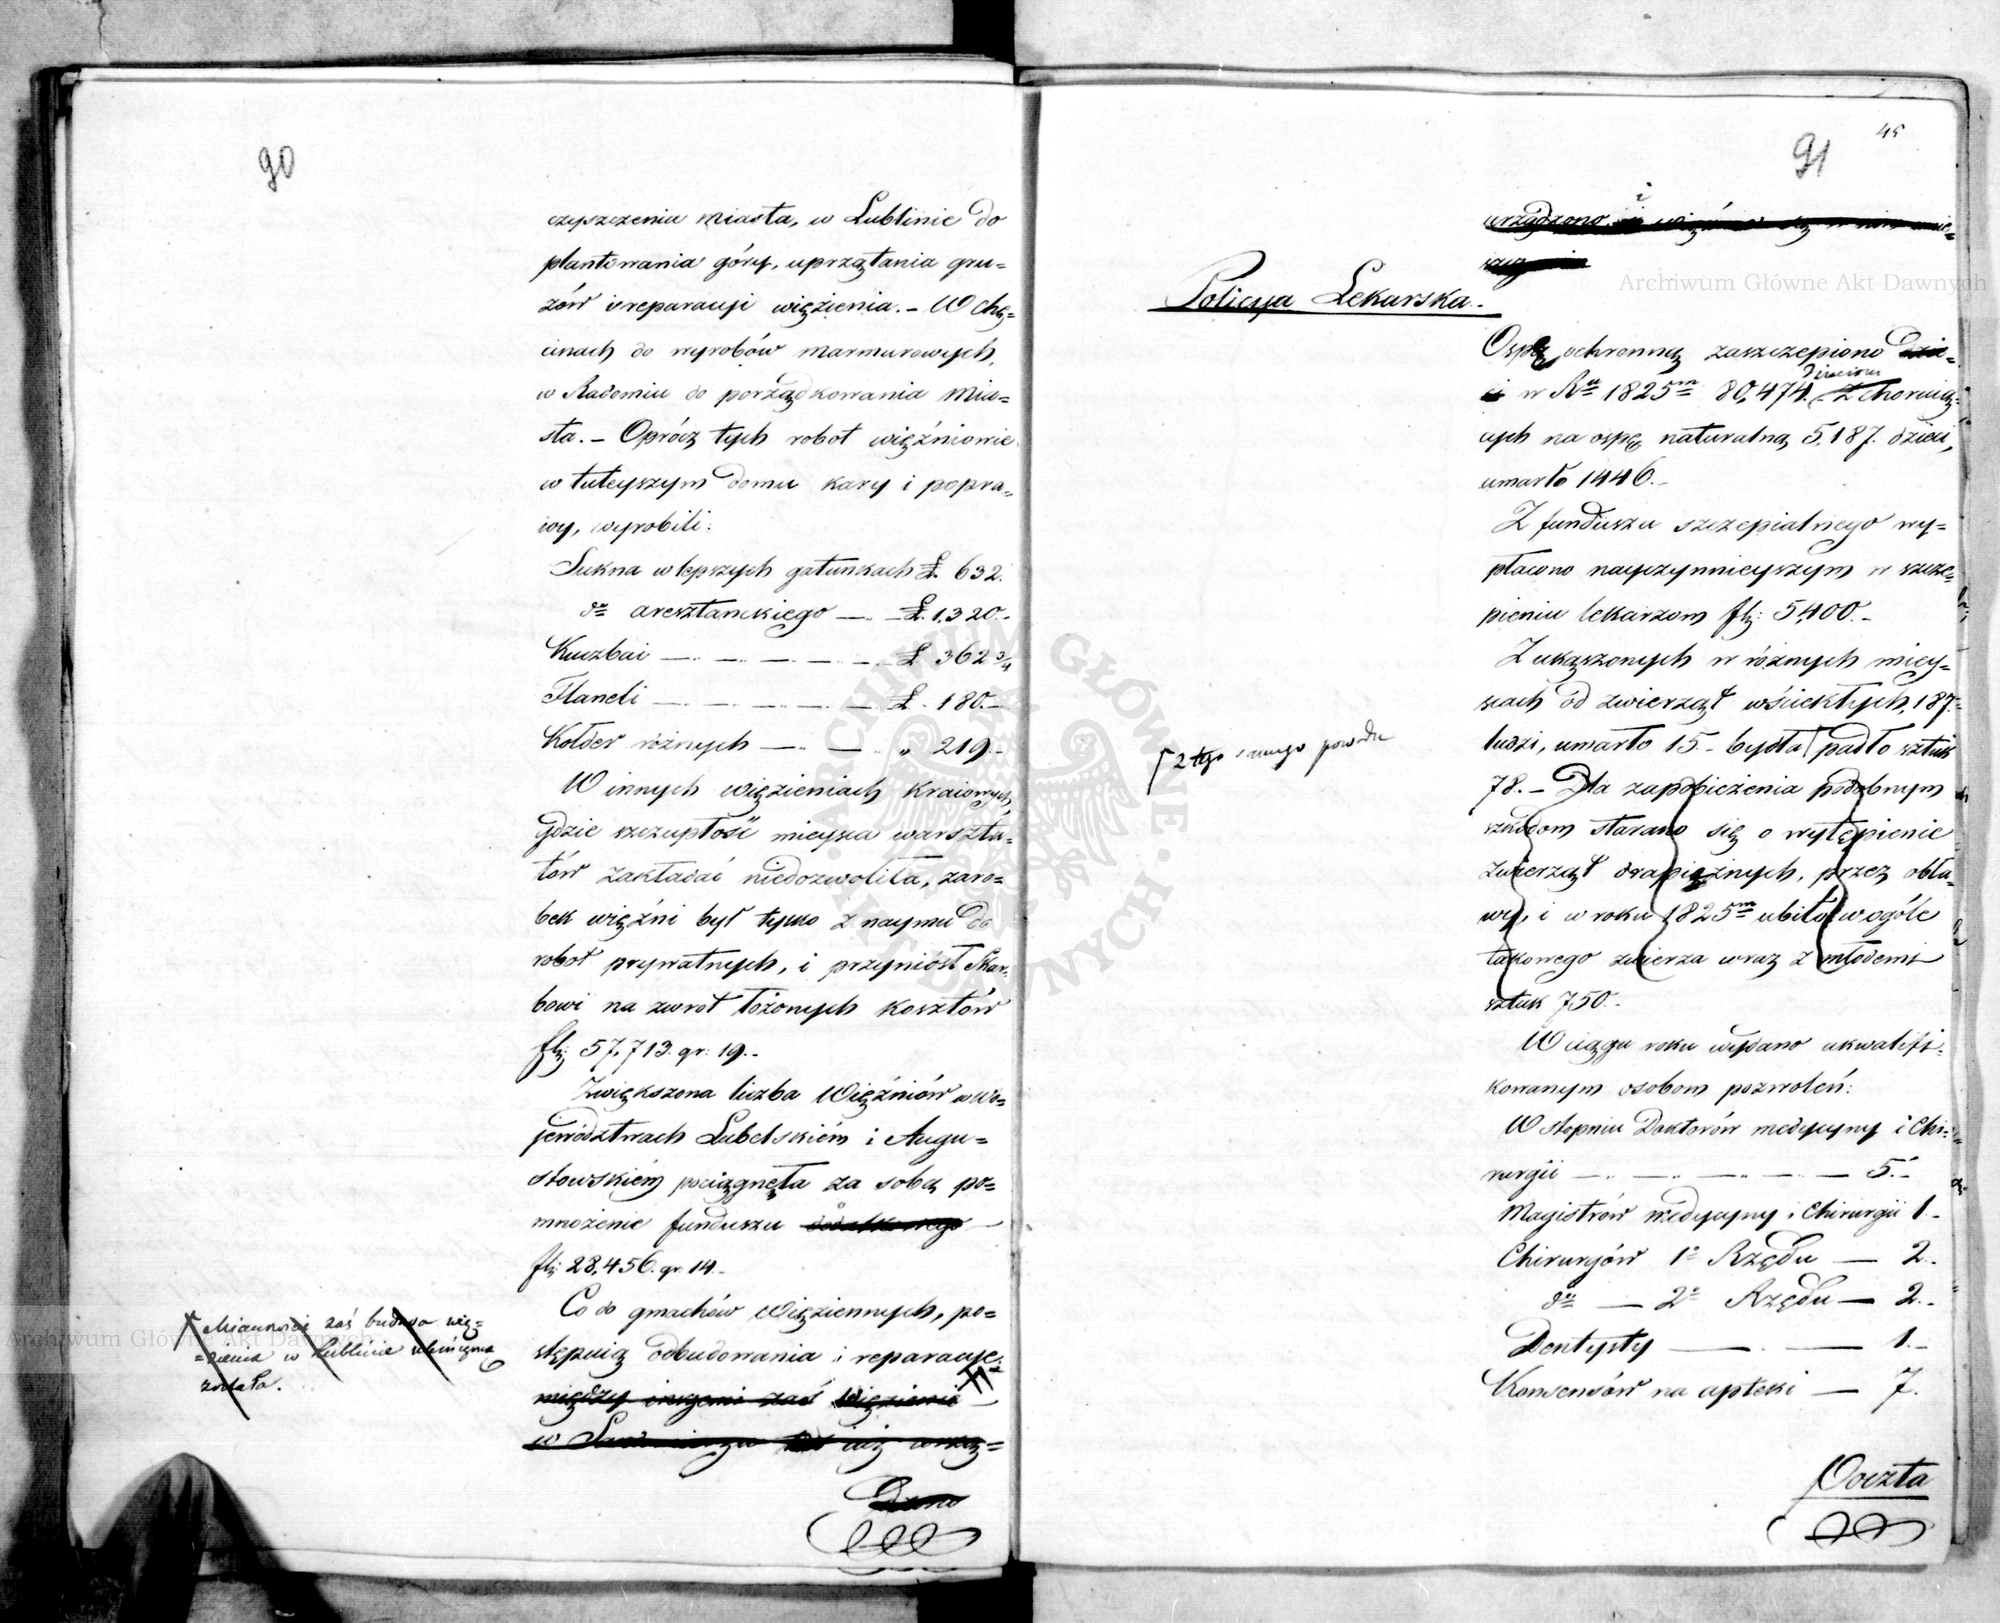 90
czyszczenia miasta, w Lublinie do
plantowania góry, uprzątania gru=
zów i reparacyi więzienia. – W Chę=
cinach do wyrobów marmurowych,
w Radomiu do porządkowania mia=
sta. – Oprócz tych robot więźniowie
w tuteyszym domu kary i popra=
wy, wyrobili:
Sukna w lepszych gatunkach Ł. 632.
do aresztanckiego — Ł. 1,320.-
Kuczbai — Ł. 362 3/4
Flaneli — Ł. 180.-
Kołder różnych — „ 219.-
W innych więzieniach kraiowych,
gdzie szczupłość mieysca warszta=
tów zakładać niedozwoliła, zaro=
bek więźni był tylko z naymu do
robot prywatnych, i przyniósł Skar=
bowi na zwrot łożonych kosztów
flp: 57,713. gr: 19.-
Zwiększona liczba Więźniów w Wo=
jewództwach Lubelskiém i Augu=
stowskiém pociągnęła za sobą po=
mnożenie funduszu dodatkowego —
flp: 28,456. gr. 14.-
Co do gmachów Więziennych, po=
stępuią odbudowania i reparacye.
między innemi zaś Więzienie
w Sandomierzu już urzą=
dzono
Mianowicie zaś budowa wię=
=zienia w Lublinie ukończona
została.
45
91
i
urządzono więźnie się w nim mie=
Policya Lekarska.
Ospę ochronną zaszczepiono dzie=
ci w Ru 1825m 80,474. dzieciom Z choruią=
cych na ospę naturalną 5,187. dzieci,
umarło 1446.-
Z funduszu szczepialnego wy=
płacono nayczynnieyszym w szcze=
pieniu lekarzom flp: 5,400.-
Z ukąszonych w różnych miey=
scach od zwierząt wściekłych, 187.
ludzi, umarło 15.- bydła padło sztuk
z tego samego powodu
78.- Dla zapobieżenia podobnym
szkodom starano się o wytępienie
zwierząt drapieżnych, przez obła=
wy, i w roku 1825m ubito w ogóle
takowego zwierza wraz z młodemi
sztuk 750.-
W ciągu roku wydano ukwalifi=
kowanym osobom pozwoleń:
W stopniu Doktorów medycyny i Chi=
rurgii — 5.-
Magistrów medycyny i Chirurgii 1.-
Chirurgów 1o Rzędu — 2.-
do — 2o Rzędu — 2.-
Dentysty — 1.-
Konsensów na apteki — 7.
Poczta
Archiwum Główne Akt Dawnych
Archiwum Główne Akt Dawnych
ARCHIWUM GŁÓWNE AKT DAWNYCH